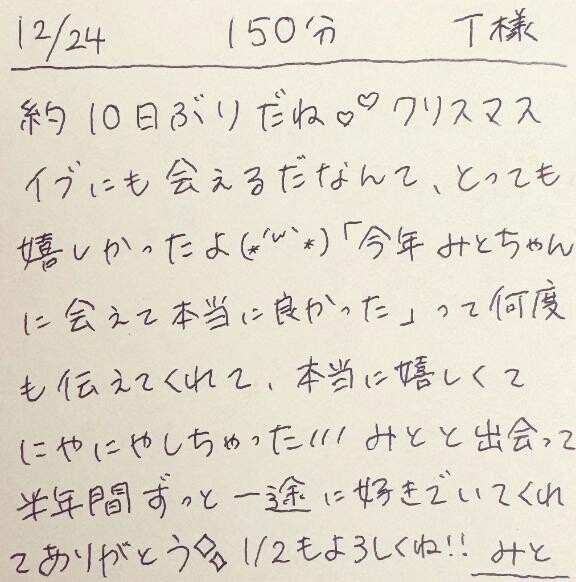 12/24 150分 T様
約10日ぶりだね♡♡クリスマス
イブにも会えるだなんて、とっても
嬉しかったよ(*´ω`*)「今年みとちゃん
に会えて本当に良かった」って何度
も伝えてくれて、本当に嬉しくて
にやにやしちゃった/// みとと出会って
半年間ずっと一途に好きでいてくれ
てありがとう✧✧ 1/2もよろしくね!! みと